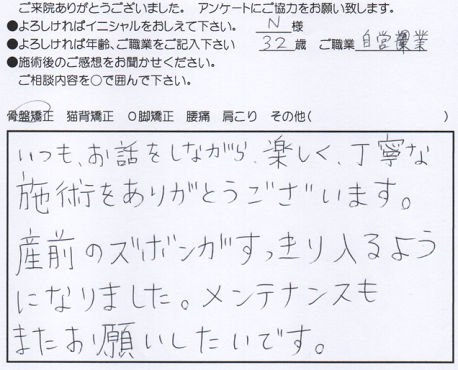 ご来院ありがとうございました。 アンケートにご協力をお願い致します。
●よろしければイニシャルをおしえて下さい N 様
●よろしければ年齢、ご職業をご記入下さい 32 歳 ご職業 自営業
●施術後のご感想をお聞かせください。
ご相談内容を○で囲んで下さい。
骨盤矯正 猫背矯正 O脚矯正 腰痛 肩こり その他( )
いつも、お話をしながら、楽しく、丁寧な
施術をありがとうございます。
産前のズボンがすっきり入るよう
になりました。メンテナンスも
またお願いしたいです。